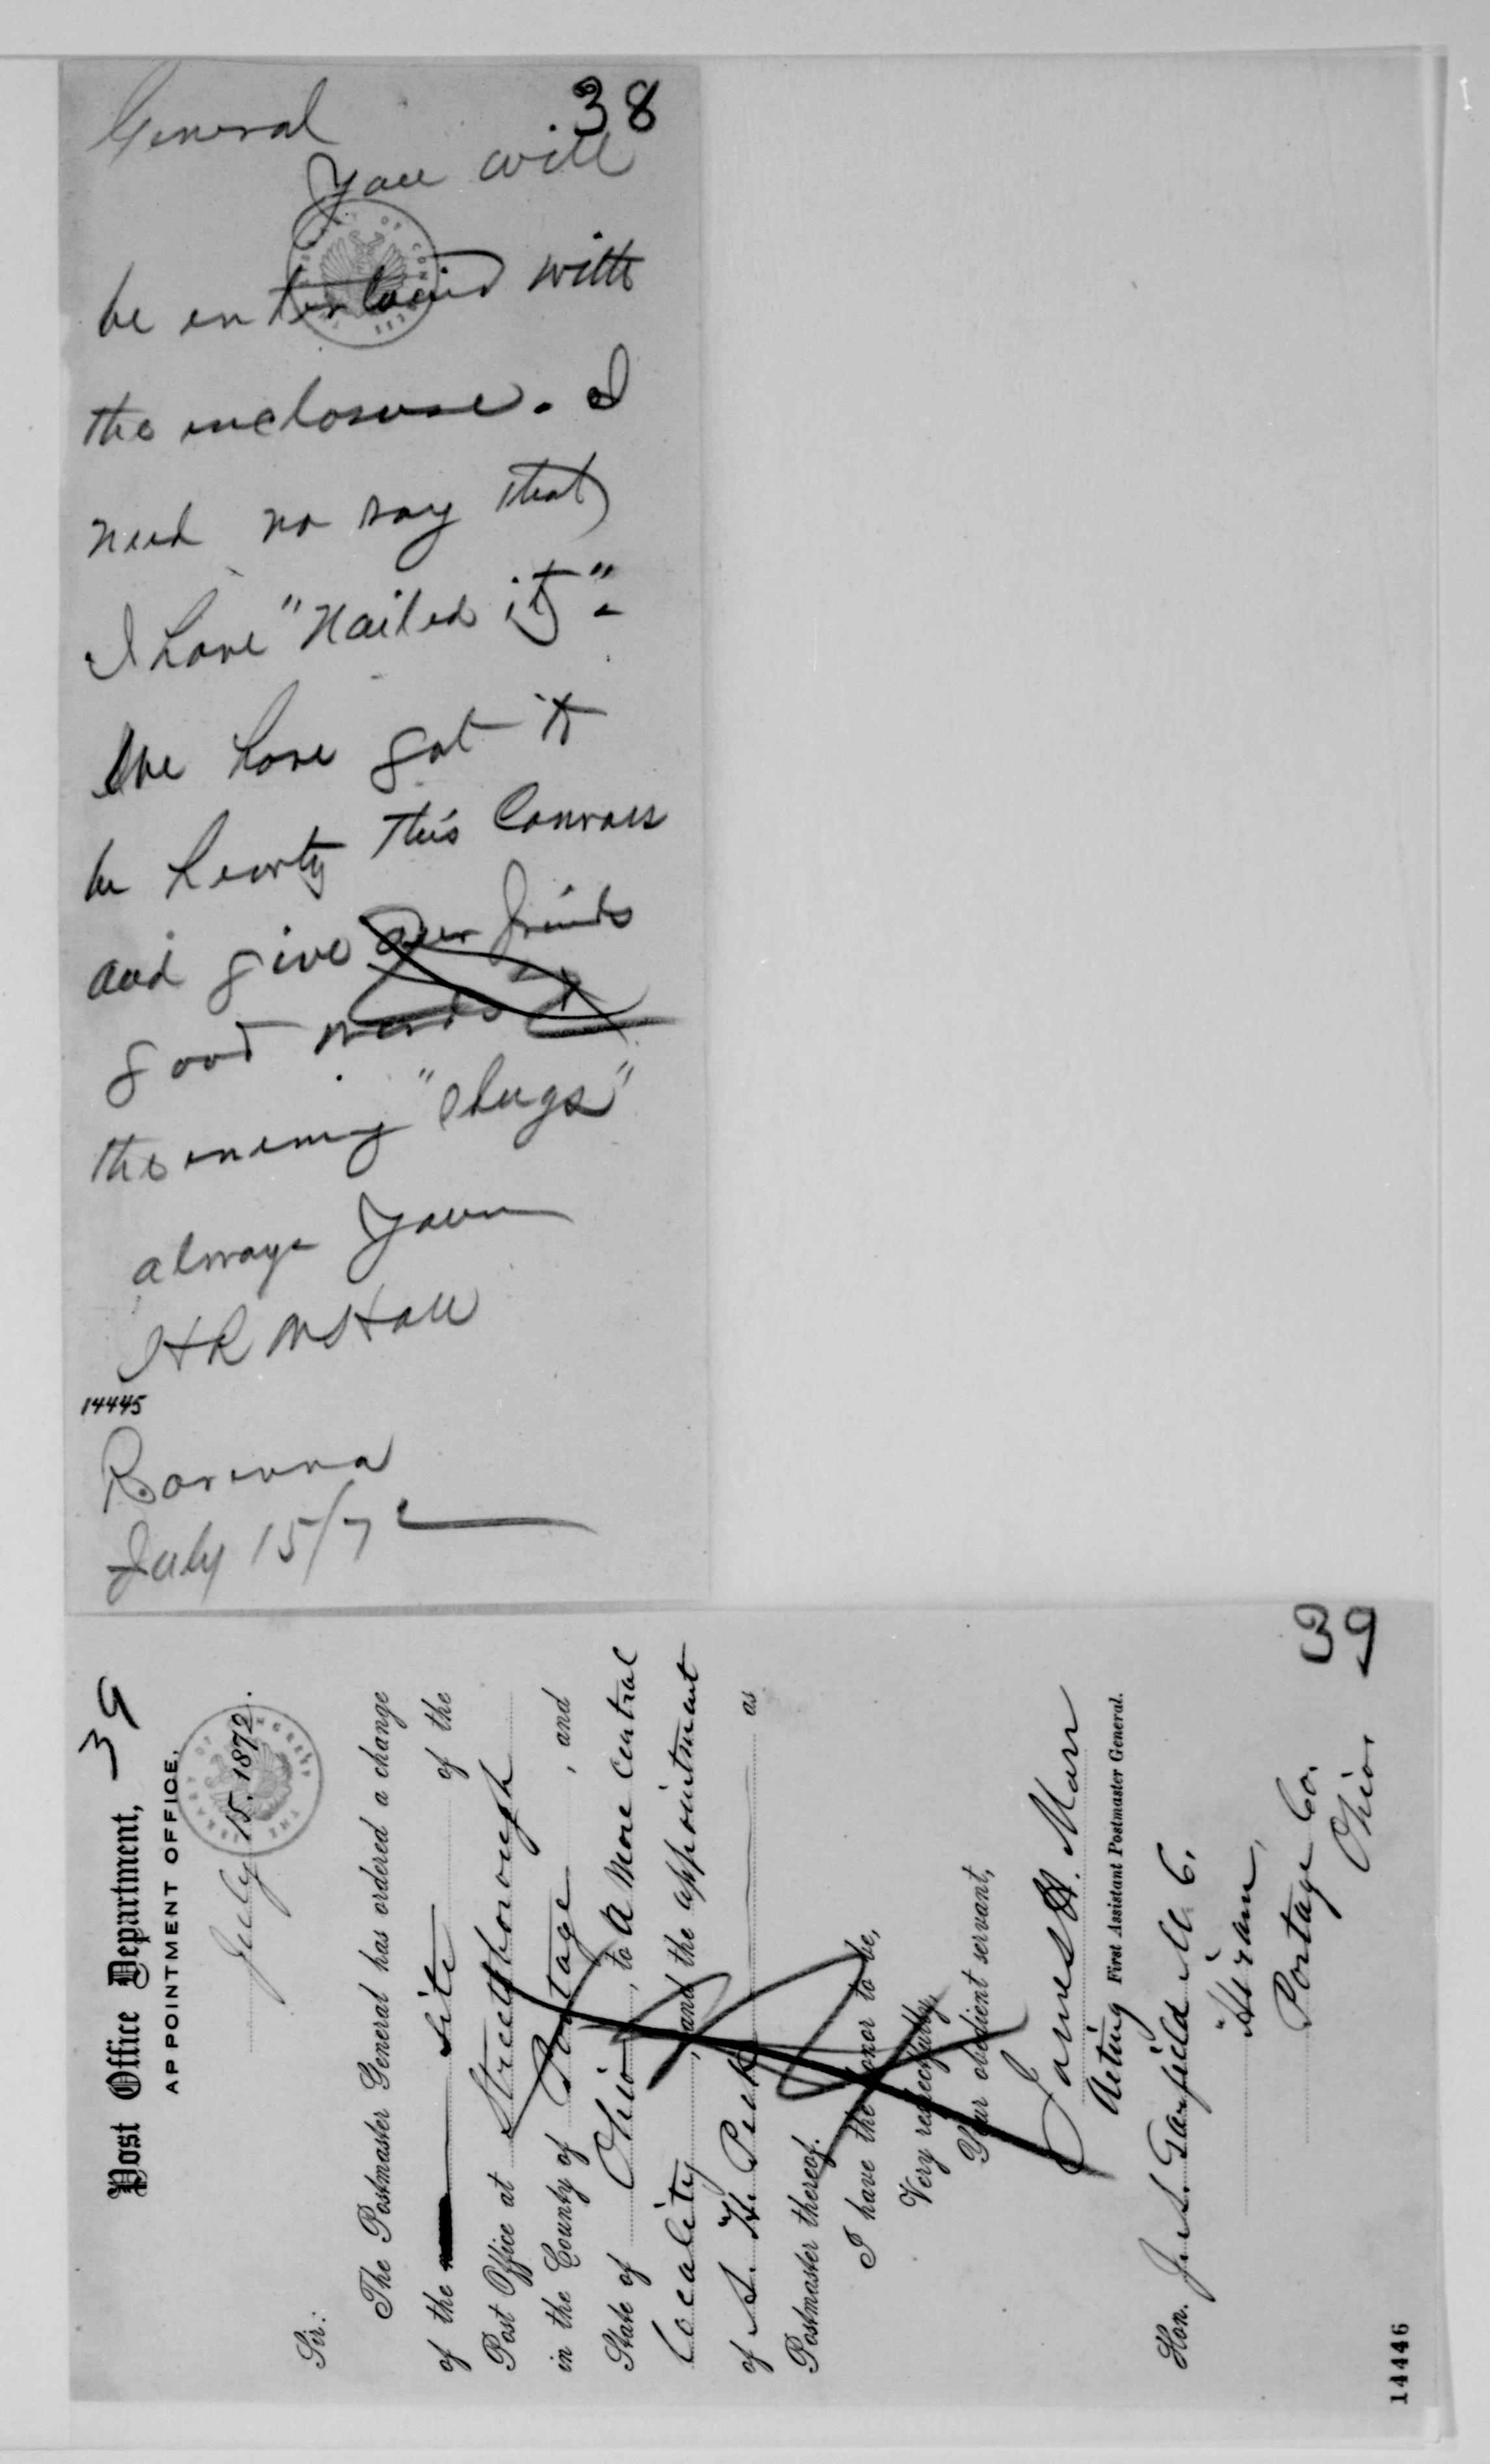 38
General
You will
be entertained with
the enclosure. I
need no say that
I have "Nailed it".
We have got it
be hearty this Canvass
and give our friends
good words &
the enemy "slugs"
always Yours
14445
Ravenna
July 15/72
39
Post Office Department,
APPOINTMENT OFFICE,
July 15. 1872.
Sir:
The Postmaster General has ordered a change
of the site of the
Post Office at Streetsborough
in the County of Portage, and
State of Ohio, to a more central
locality, and the appointment
of S. H. Peck as
Postmaster thereof.
I have the honor to be,
Very respectfully,
Your obedient servant,
James H. Marr
Acting First Assistant Postmaster General.
Hon. J. A. Garfield M. C.
Hiram,
Portage Co.
Ohio.
39
14446